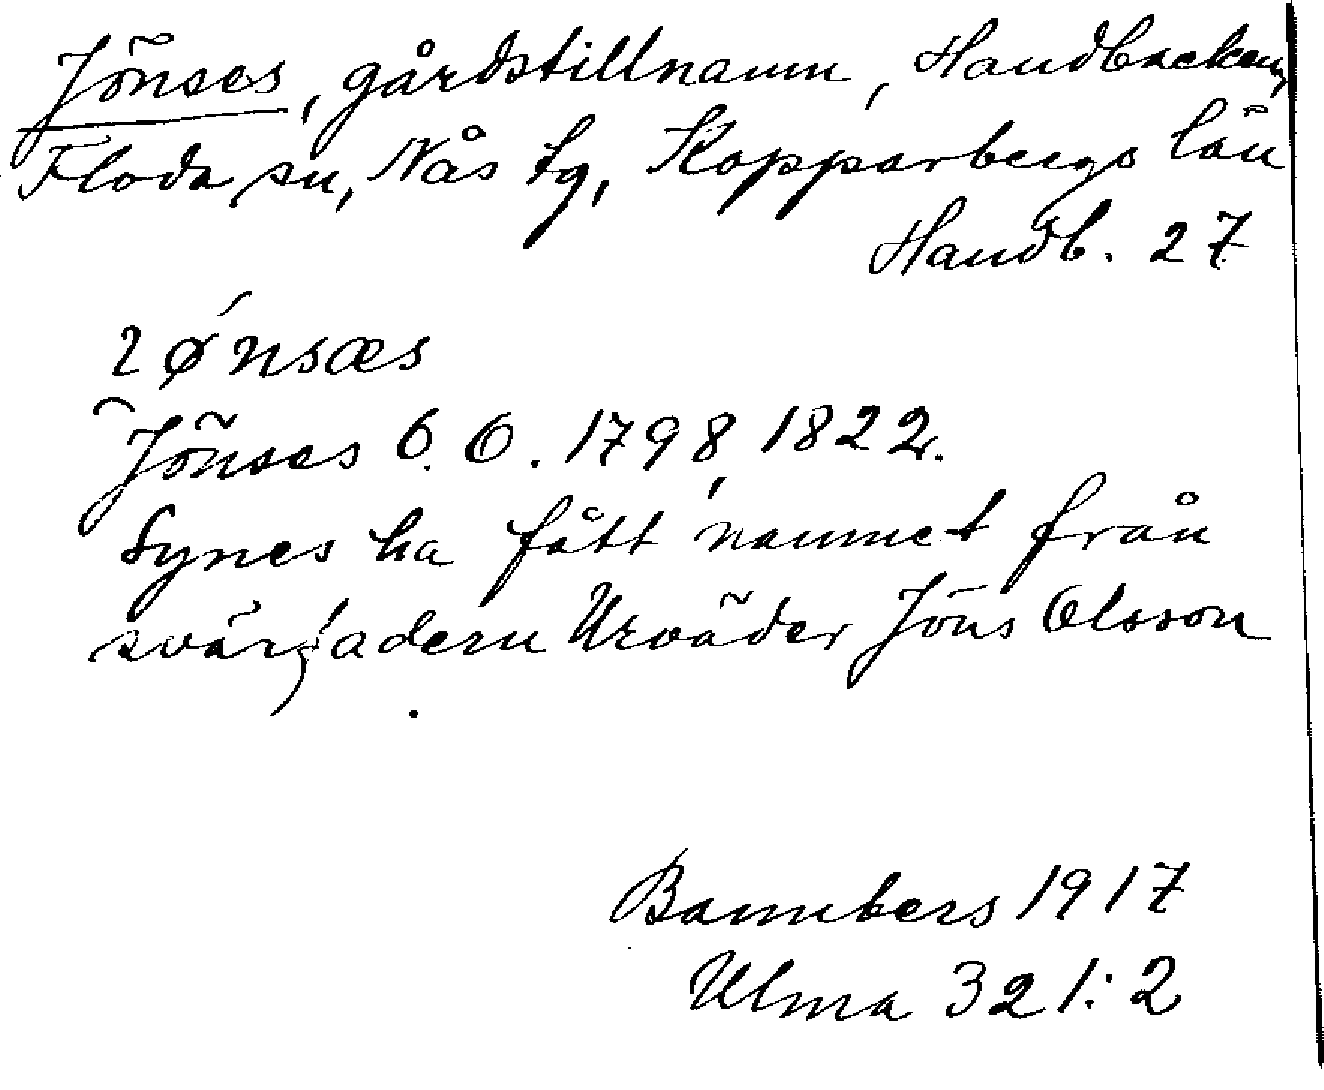 Jönses, gårdstillnamn, Handbacken,
Floda sn, Nås tg, Kopparbergs län
Handb. 27
ʅǿnsæs
Jönses C. O. 1798, 1822.
Synes ha fått namnet från
svärfadern Urväder Jöns Olsson
Bannbers 1917
Ulma 321:2